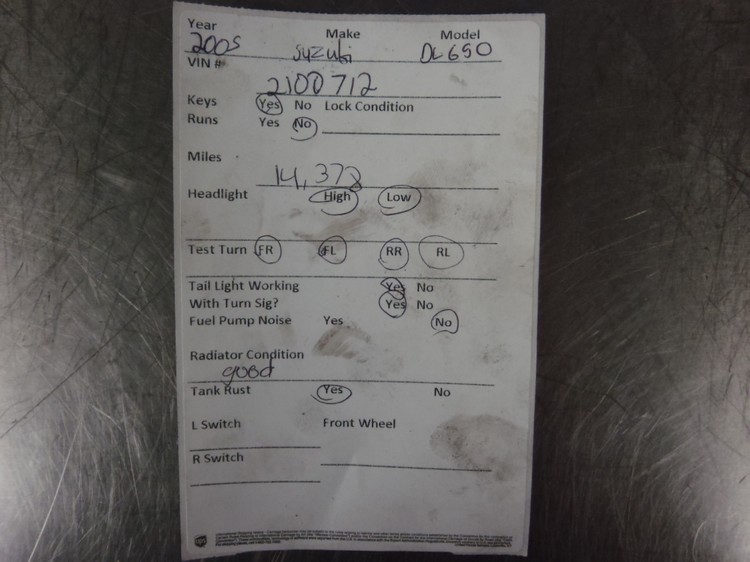 Year Make Model
2005 Suzuki DL650
VIN #
2100712
Keys Yes No Lock Condition
Runs Yes No
Miles
14,378
Headlight High Low
Test Turn FR FL RR RL
Tail Light Working Yes No
With Turn Sig? Yes No
Fuel Pump Noise Yes No
Radiator Condition
good
Tank Rust Yes No
L Switch Front Wheel
R Switch